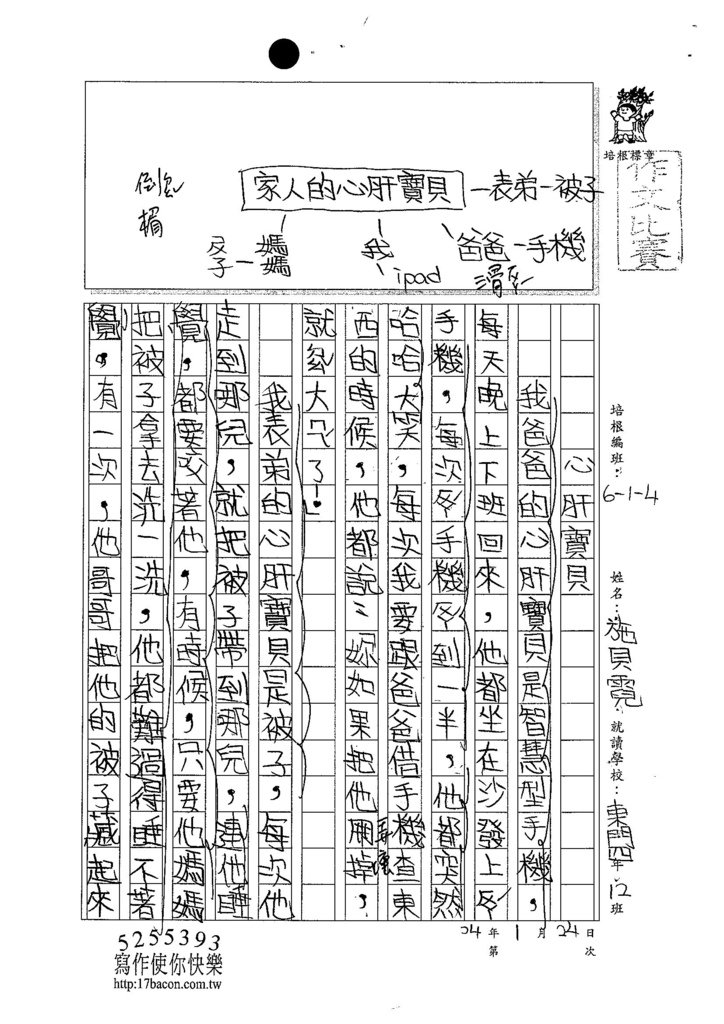 家人的心肝寶貝
表弟-被子
媽媽
我
ipad
爸爸-手機
培根標章
作文比賽
培根編班：6-1-4
姓名：施貝霓
就讀學校：東門四年12班
心肝寶貝
我爸爸的心肝寶貝是智慧型手機，
每天晚上下班回來，他都坐在沙發上
手機，每次手機到一半，他都突然
哈哈大笑，每次我要跟爸爸借手機查東
西的時候，他都說：妳如果把他弄壞，
就大了！」
我表弟的心肝寶貝是被子，每次他
走到哪兒，就把被子帶到哪兒，連他睡
覺，都要咬著他，有時候，只要他媽媽
把被子拿去洗一洗，他都難過得睡不著
覺，有一次，他哥哥把他的被子藏起來
04年1月24日
第 次
5255393
寫作使你快樂
http:17bacon.com.tw